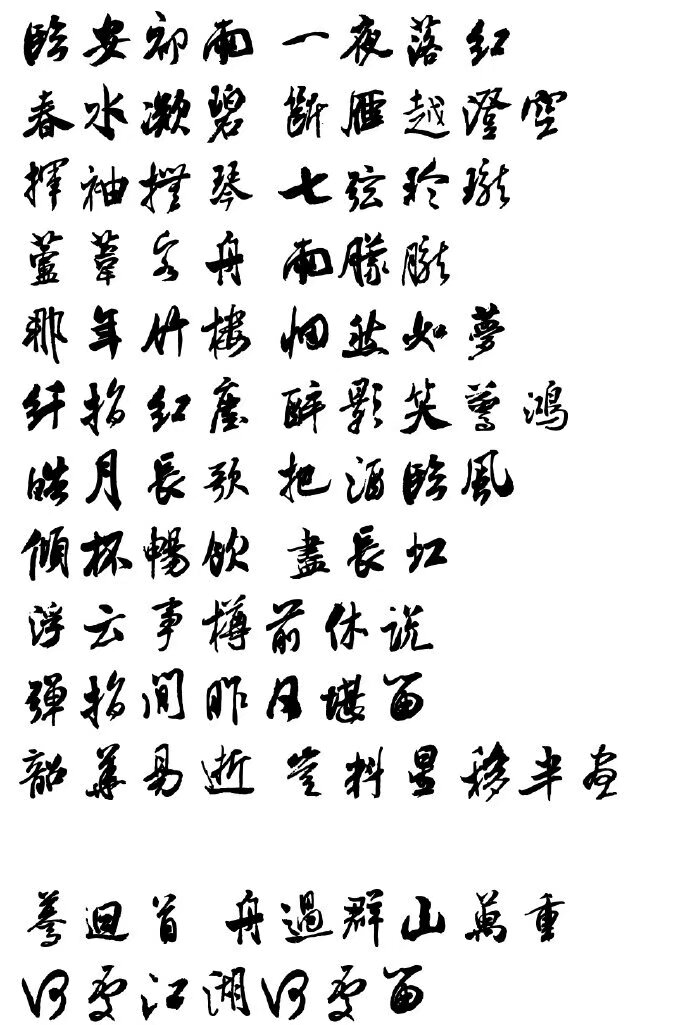 臨安初雨 一夜落紅
春水凝碧 斷雁越澄空
揮袖撫琴 七弦玲瓏
蘆葦客舟 雨朦朧
那年竹樓 惘然如夢
纤指紅塵 醉影笑驚鴻
皓月長歌 把酒臨風
傾杯暢飲 盡長虹
浮云事樽前休說
彈指間昨日堪留
韶華易逝 豈料星移半
驀迴首 舟過群山萬重
何處江湖何處留